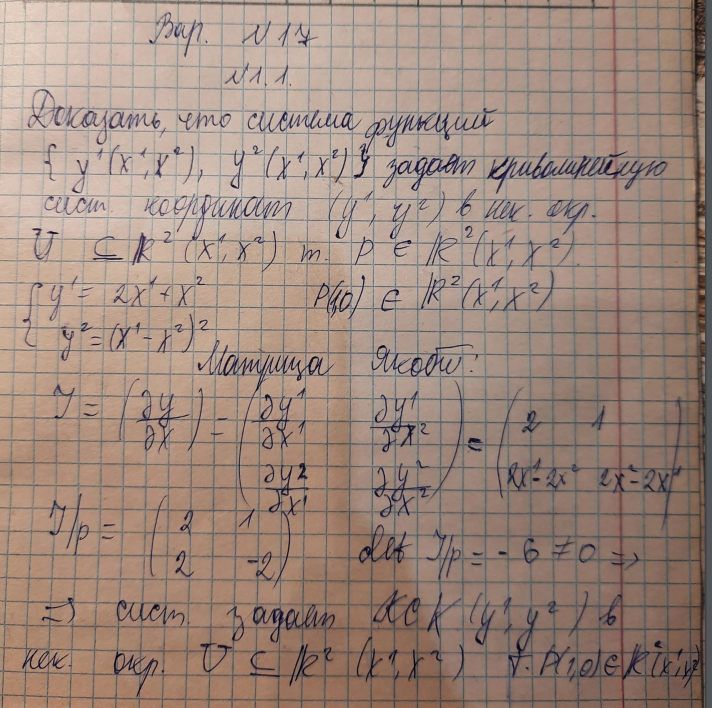 Вар. №17
№1.1.
Доказать, что система функций
{ y¹(x¹,x²), y²(x¹,x²) } задает криволинейную
сист. координат (y¹, y²) в нек. окр.
U ⊆ ℝ²(x¹,x²) т. P ∈ ℝ²(x¹,x²).
{ y¹ = 2x¹+x² P(1,0) ∈ ℝ²(x¹,x²)
y² = (x¹-x²)²
Матрица Якоби:
J = (∂y/∂x) = (∂y¹/∂x¹ ∂y¹/∂x² ; ∂y²/∂x¹ ∂y²/∂x²) = (2 1 ; 2x¹-2x² 2x²-2x¹)
J|p = (2 1 ; 2 -2) det J|p = -6 ≠ 0 =>
=> сист. задает КСК (y¹,y²) в
нек. окр. U ⊆ ℝ² (x¹,x²) т. P(1,0) ∈ ℝ²(x¹,x²)